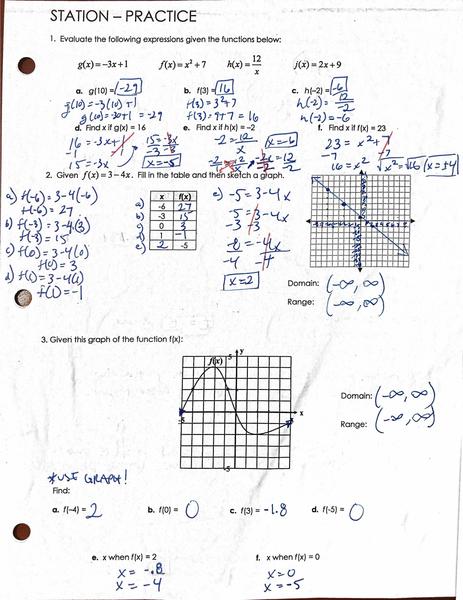 STATION – PRACTICE
1. Evaluate the following expressions given the functions below:
g(x) = −3x + 1 f(x) = x² + 7 h(x) = 12/x j(x) = 2x + 9
a. g(10) = -29 b. f(3) = 16 c. h(−2) = -6
g(10) = -3(10)+1 f(3) = 3²+7 h(-2) = 12/-2
g(10) = -30+1 = -29 f(3) = 9+7 = 16 h(-2) = -6
d. Find x if g(x) = 16 e. Find x if h(x) = −2 f. Find x if f(x) = 23
16 = -3x+1 15 = -3x -2 = 12/x x = -6 23 = x² + 7
-1 -3 -3 -7 -7
15 = -3x x = -5 16 = x² √x² = √16 x = ±4
2. Given f(x) = 3 − 4x. Fill in the table and then sketch a graph.
a) f(-6) = 3-4(-6)
f(-6) = 27
b) f(-3) = 3-4(3)
f(-3) = 15
c) f(0) = 3-4(0)
f(0) = 3
d) f(1) = 3-4(1)
f(1) = -1
x f(x)
a) -6 27
b) -3 15
c) 0 3
d) 1 -1
e) 2 -5
e) -5 = 3-4x
-5 = 3-4x
-3 -3
-8 = -4x
-4 -4
x = 2
Domain: (-∞, ∞)
Range: (-∞, ∞)
3. Given this graph of the function f(x):
f(x) 5 y
-5 x
-5
Domain: (-∞, ∞)
Range: (-∞, ∞)
*USE GRAPH!
Find:
a. f(−4) = 2 b. f(0) = 0 c. f(3) = -1.8 d. f(-5) = 0
e. x when f(x) = 2 f. x when f(x) = 0
x = -.8 x = 0
x = -4 x = -5